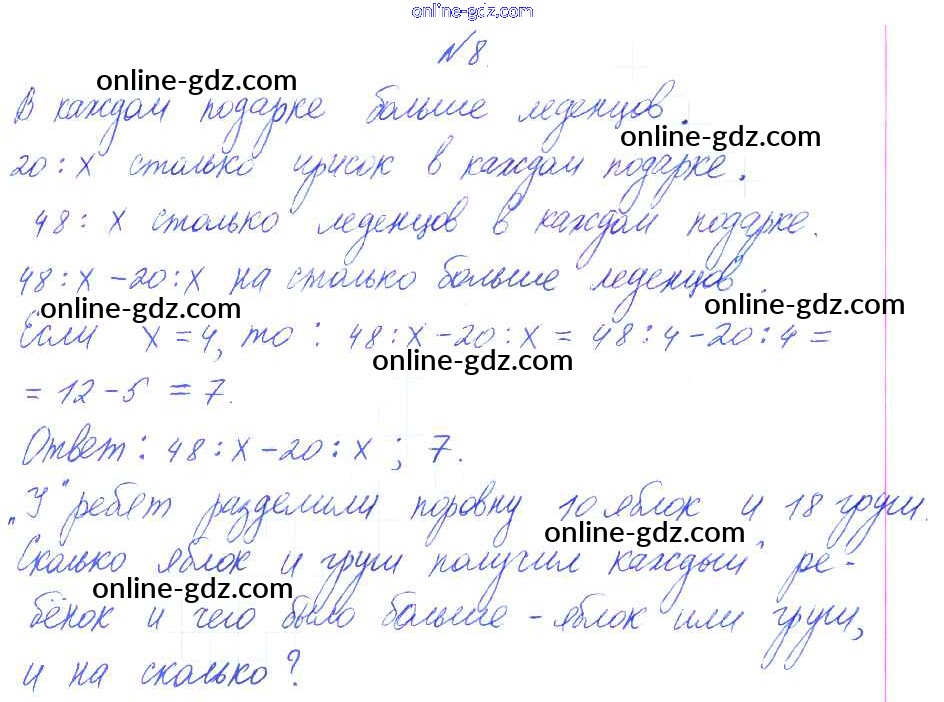 online-gdz.com
N8.
online-gdz.com
В каждом подарке больше леденцов.
online-gdz.com
20 : x столько ирисок в каждом подарке.
48 : x столько леденцов в каждом подарке.
48 : x – 20 : x на столько больше леденцов.
online-gdz.com
online-gdz.com
Если x = 4, то : 48 : x – 20 : x = 48 : 4 – 20 : 4 =
online-gdz.com
= 12 – 5 = 7.
Ответ : 48 : x – 20 : x ; 7.
„У" ребят разделили поровну 10 яблок и 18 груш.
online-gdz.com
Сколько яблок и груш получил каждый ре-
online-gdz.com
бёнок и чего было больше – яблок или груш,
и на сколько?